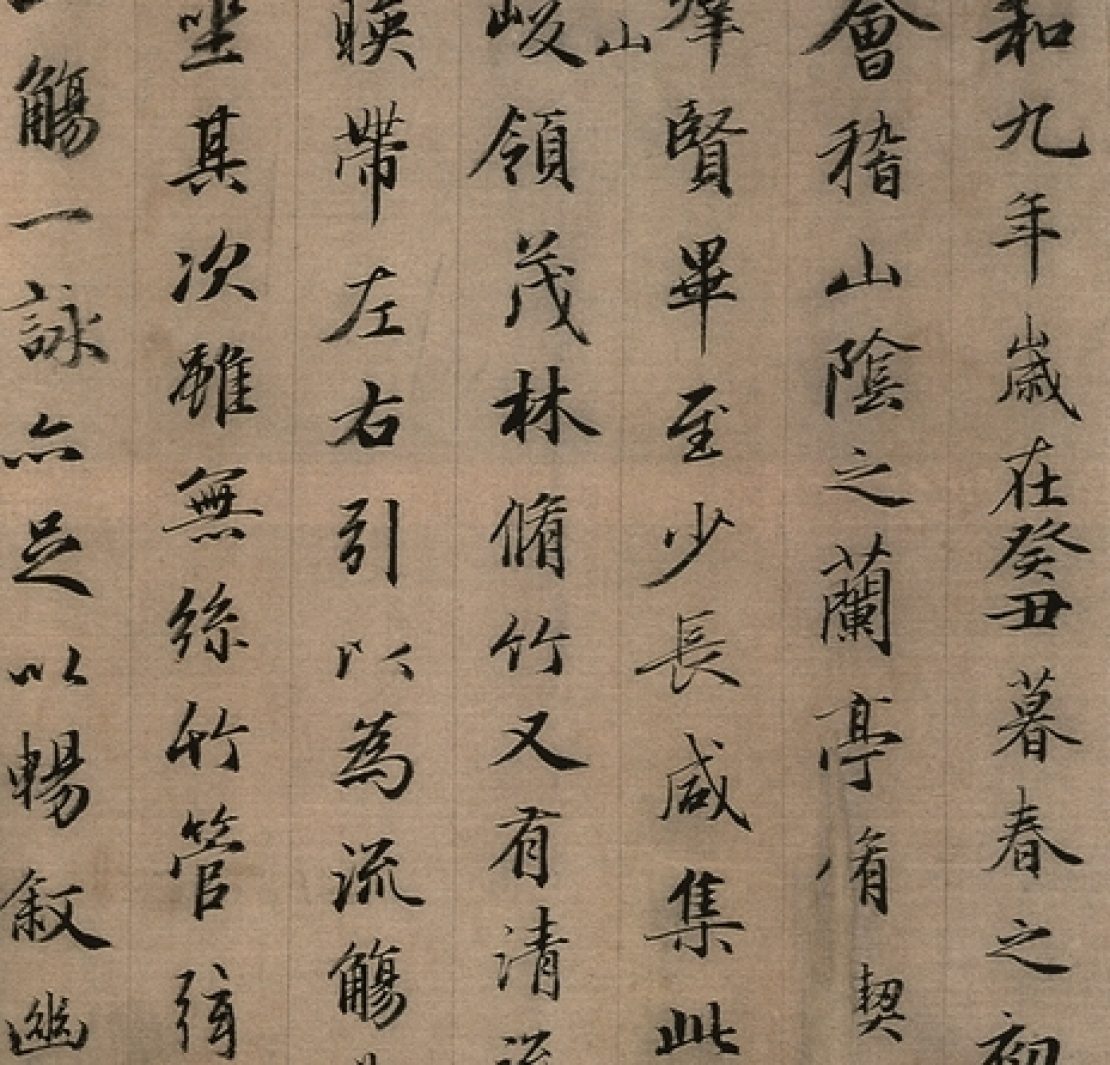 和九年歲在癸丑暮春之初
會稽山陰之蘭亭脩契
羣賢畢至少長咸集此
山
峻領茂林脩竹又有清流
暎帶左右引以為流觴
坐其次雖無絲竹管弦
觴一詠亦足以暢敘幽